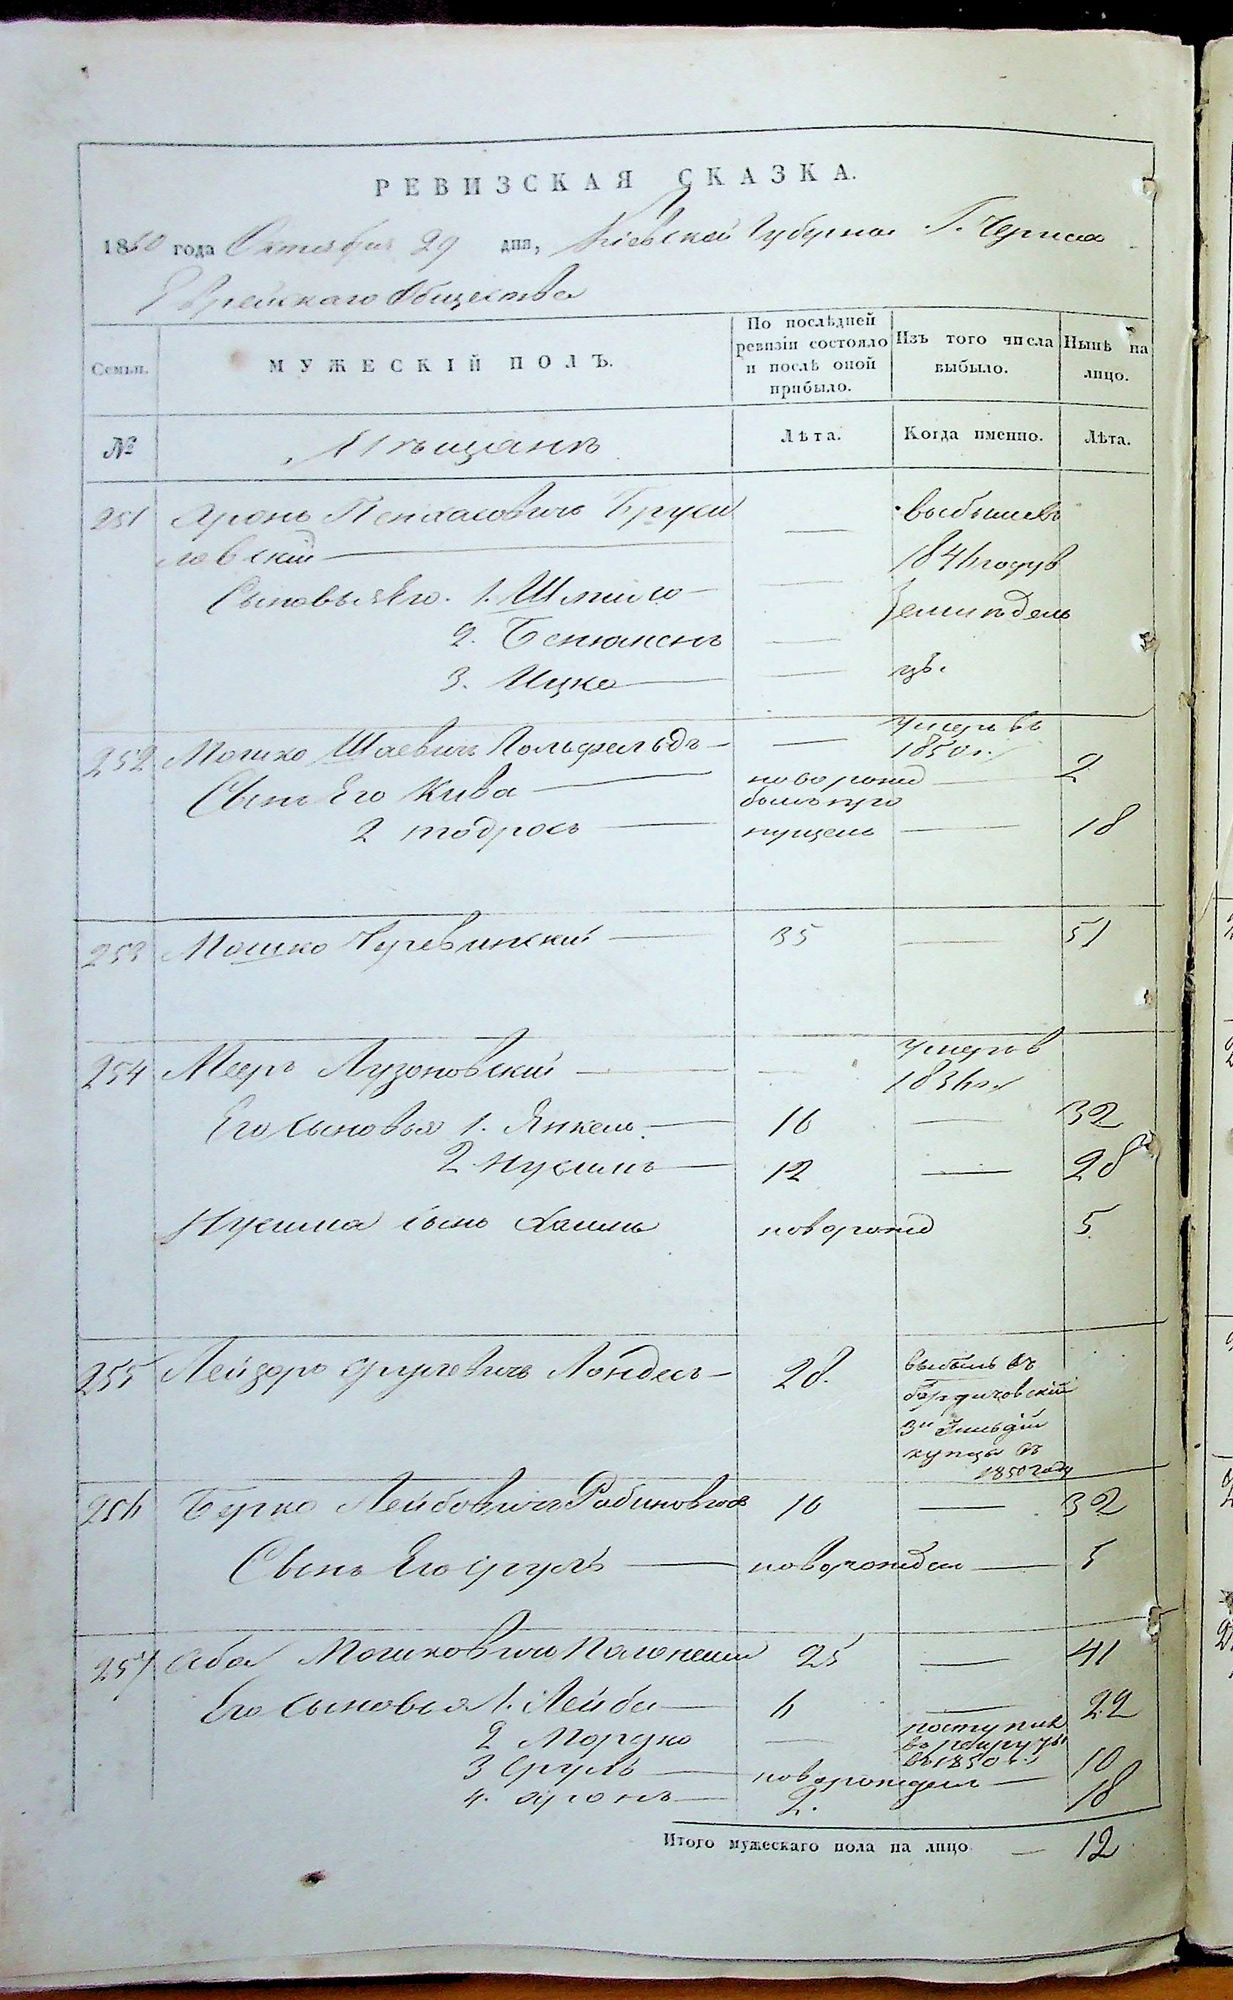 РЕВИЗСКАЯ СКАЗКА.
1850 года Октября 29 дня, Кіевской Губерніи Г.
Еврейскаго Общества
Семьи. МУЖЕСКІЙ ПОЛЪ. По послѣдней ревизіи состояло и послѣ оной прибыло. Изъ того числа выбыло. Нынѣ на лицо.
№ Мѣщанъ Лѣта. Когда именно. Лѣта.
251 Аронъ Пенхасовичъ Бруси — выбылъ въ
ловскій — 1846 году в
Сыновья Его. 1. Шмило — — Земледель
2. Бенюменъ —
3. Ицко — — цъ.
252 Мошко Шаевичъ Гольдфельдъ — — Умеръ въ 1850 г.
Сынъ Его Кива — новорожд 2
2 Тодросъ — былъ про
пущенъ — 18
253 Мошко — 35 — 51
254 Меэръ Лузоновскій — — умеръ в 1836 г.
Его сыновья 1. Янкель — 16 — 32
2 Нухимъ — 12 — 28
Нухима сынъ Хаимъ новорожд 5
255 Лейзоръ Срулевичъ Ландесъ — 28. выбылъ въ
бердичовскій
3й Гильдіи
купцы въ
1850 году
256 Берко Лейбовичъ Рабиновичъ 16 — 32
Сынъ Его Сруль — новорожден — 5
257 Аба Мошковичъ 25 — 41
Его Сыновья 1. Лейба — 6 — 22
2 Мордко — поступил
въ рекруты
въ 1850 г.
3 Сруль — новорожден — 10
4. Аронъ — 2. 18
Итого мужескаго пола на лицо — 12